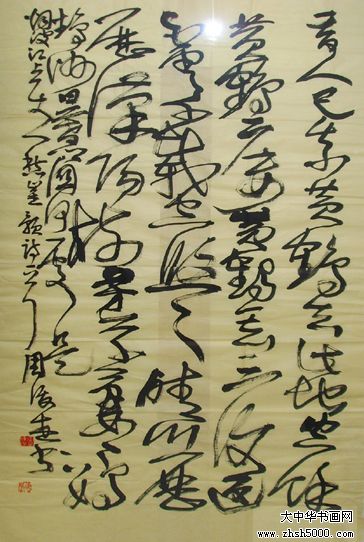 昔人已乘黄鹤去此地空余
黄鹤楼黄鹤一去不复返
白云千载空悠悠晴川历
历汉阳树芳草萋萋鹦
鹉洲日暮乡关何处是
烟波江上使人愁崔颢诗 周 书
大中华书画网
www.zhsh5000.com